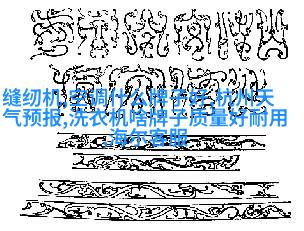 缝纫机,空调什么牌子好,杭州天
气预报,洗衣机啥牌子质量好耐用
,海尔客服